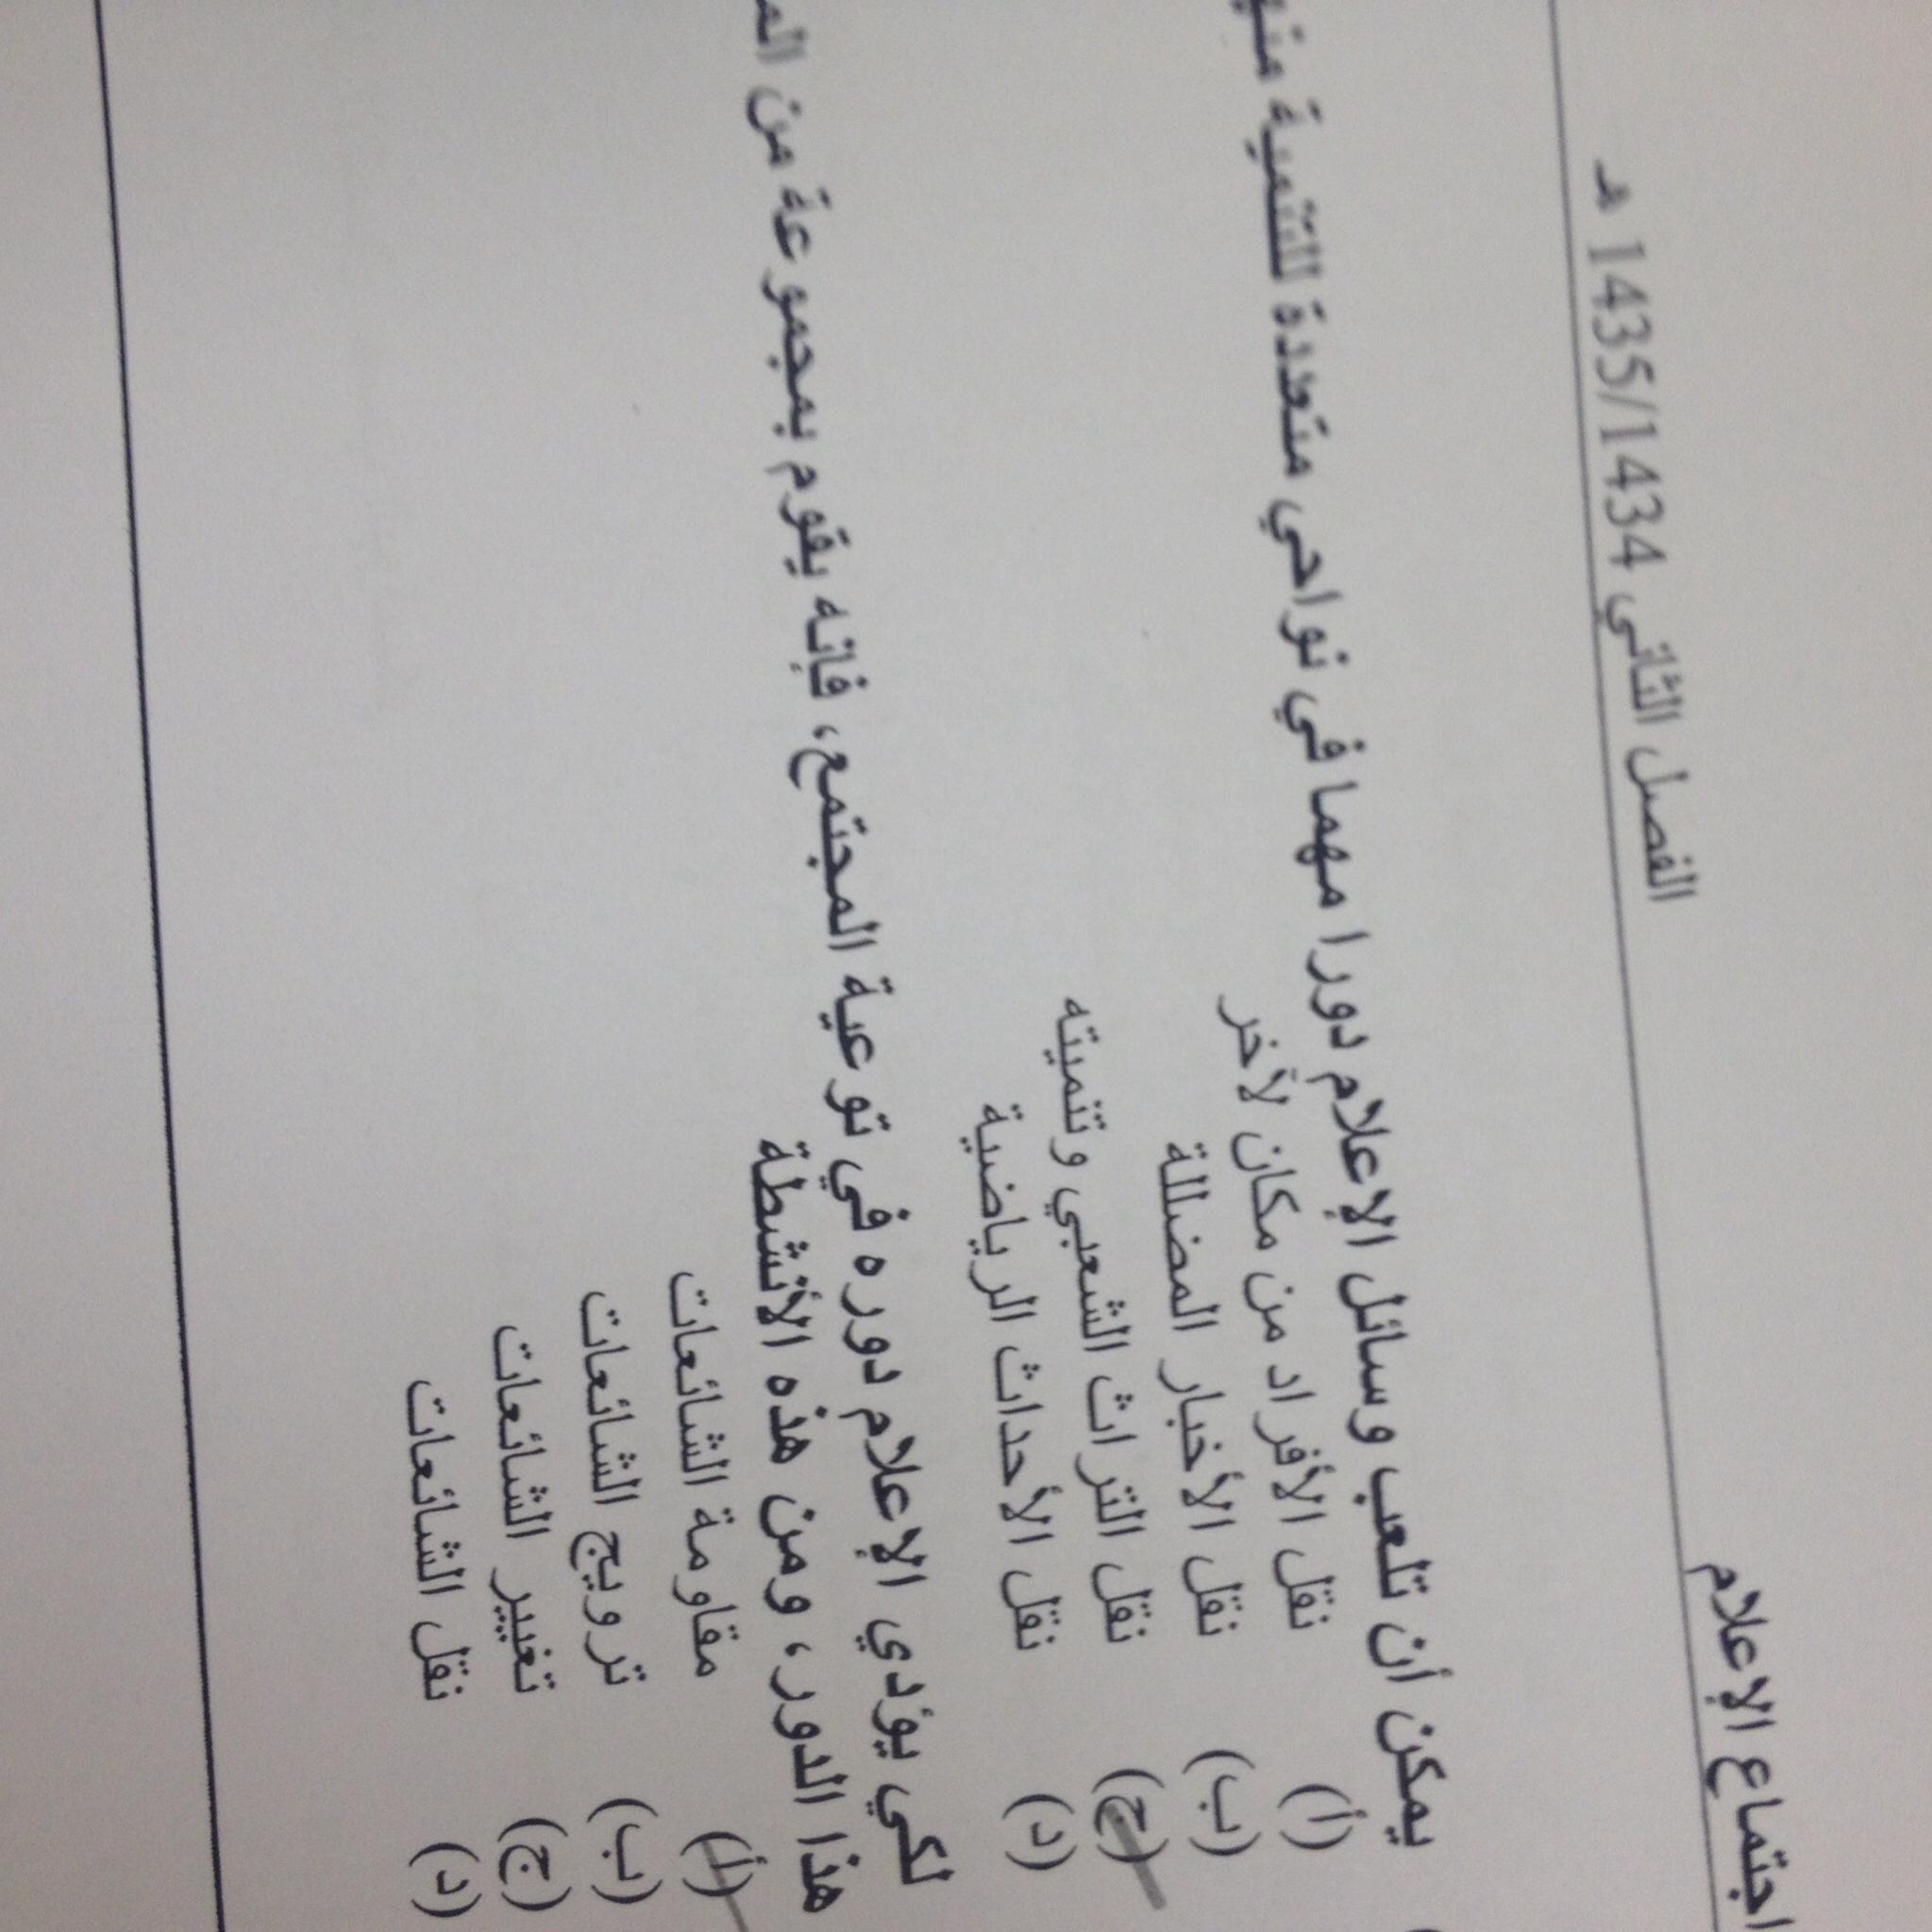 اجتماع الإعلام
الفصل الثاني 1435/1434 هـ
يمكن أن تلعب وسائل الإعلام دورا مهما في نواحي متعددة للتنمية
(أ) نقل الأفراد من مكان لآخر
(ب) نقل الأخبار المضللة
(ج) نقل التراث الشعبي وتنميته
(د) نقل الأحداث الرياضية
لكي يؤدي الإعلام دوره في توعية المجتمع، فإنه يقوم بمجموعة من
هذا الدور، ومن هذه الأنشطة
(أ) مقاومة الشائعات
(ب) ترويج الشائعات
(ج) تغيير الشائعات
(د) نقل الشائعات